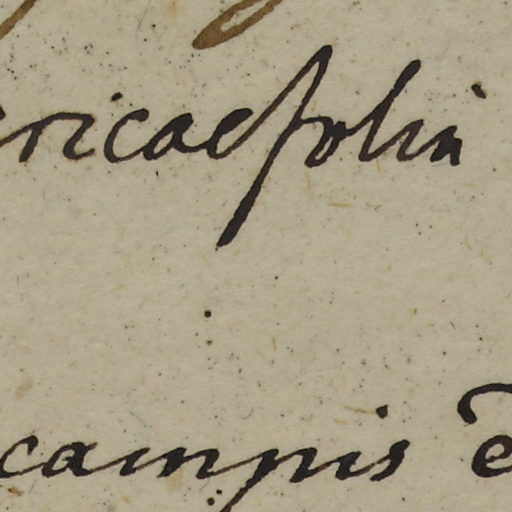 ericaefolia
campis e